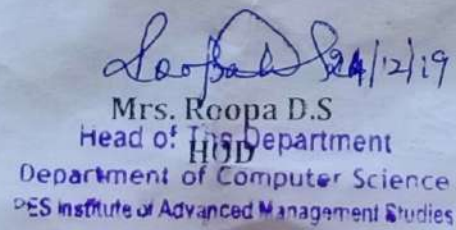 24/12/19
Mrs. Roopa D.S
Head of The Department
HOD
Department of Computer Science
PES Institute of Advanced Management Studies